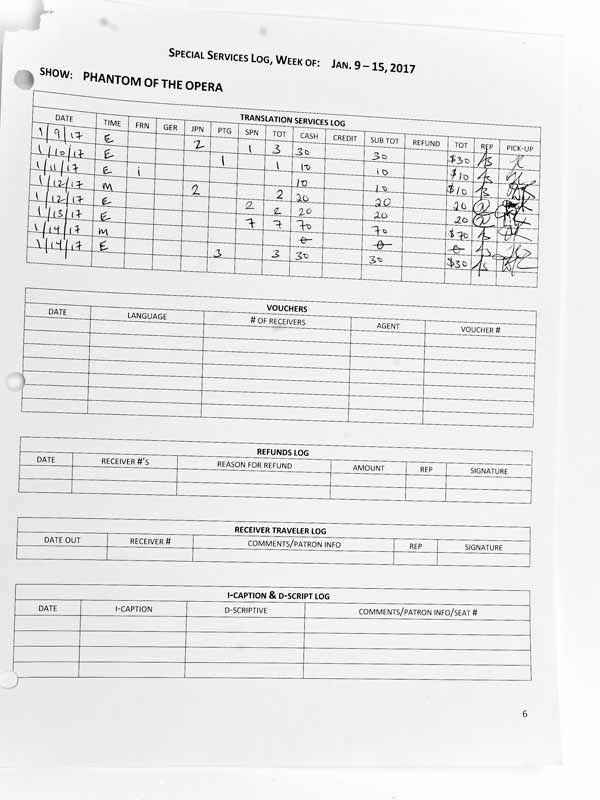 SPECIAL SERVICES LOG, WEEK OF: JAN. 9 – 15, 2017
SHOW: PHANTOM OF THE OPERA
TRANSLATION SERVICES LOG
DATE TIME FRN GER JPN PTG SPN TOT CASH CREDIT SUB TOT REFUND TOT REP PICK-UP
1/9/17 E 2 1 3 30 30 $30
1/10/17 E 1 1 10 10 $10
1/11/17 E 1 10 10 $10
1/12/17 M 2 2 20 20 20
1/12/17 E 2 2 20 20 20
1/13/17 E 7 7 70 70 $70
1/14/17 M 0 0 0
1/14/17 E 3 3 30 30 $30
VOUCHERS
DATE LANGUAGE # OF RECEIVERS AGENT VOUCHER #
REFUNDS LOG
DATE RECEIVER #'S REASON FOR REFUND AMOUNT REP SIGNATURE
RECEIVER TRAVELER LOG
DATE OUT RECEIVER # COMMENTS/PATRON INFO REP SIGNATURE
I-CAPTION & D-SCRIPT LOG
DATE I-CAPTION D-SCRIPTIVE COMMENTS/PATRON INFO/SEAT #
6